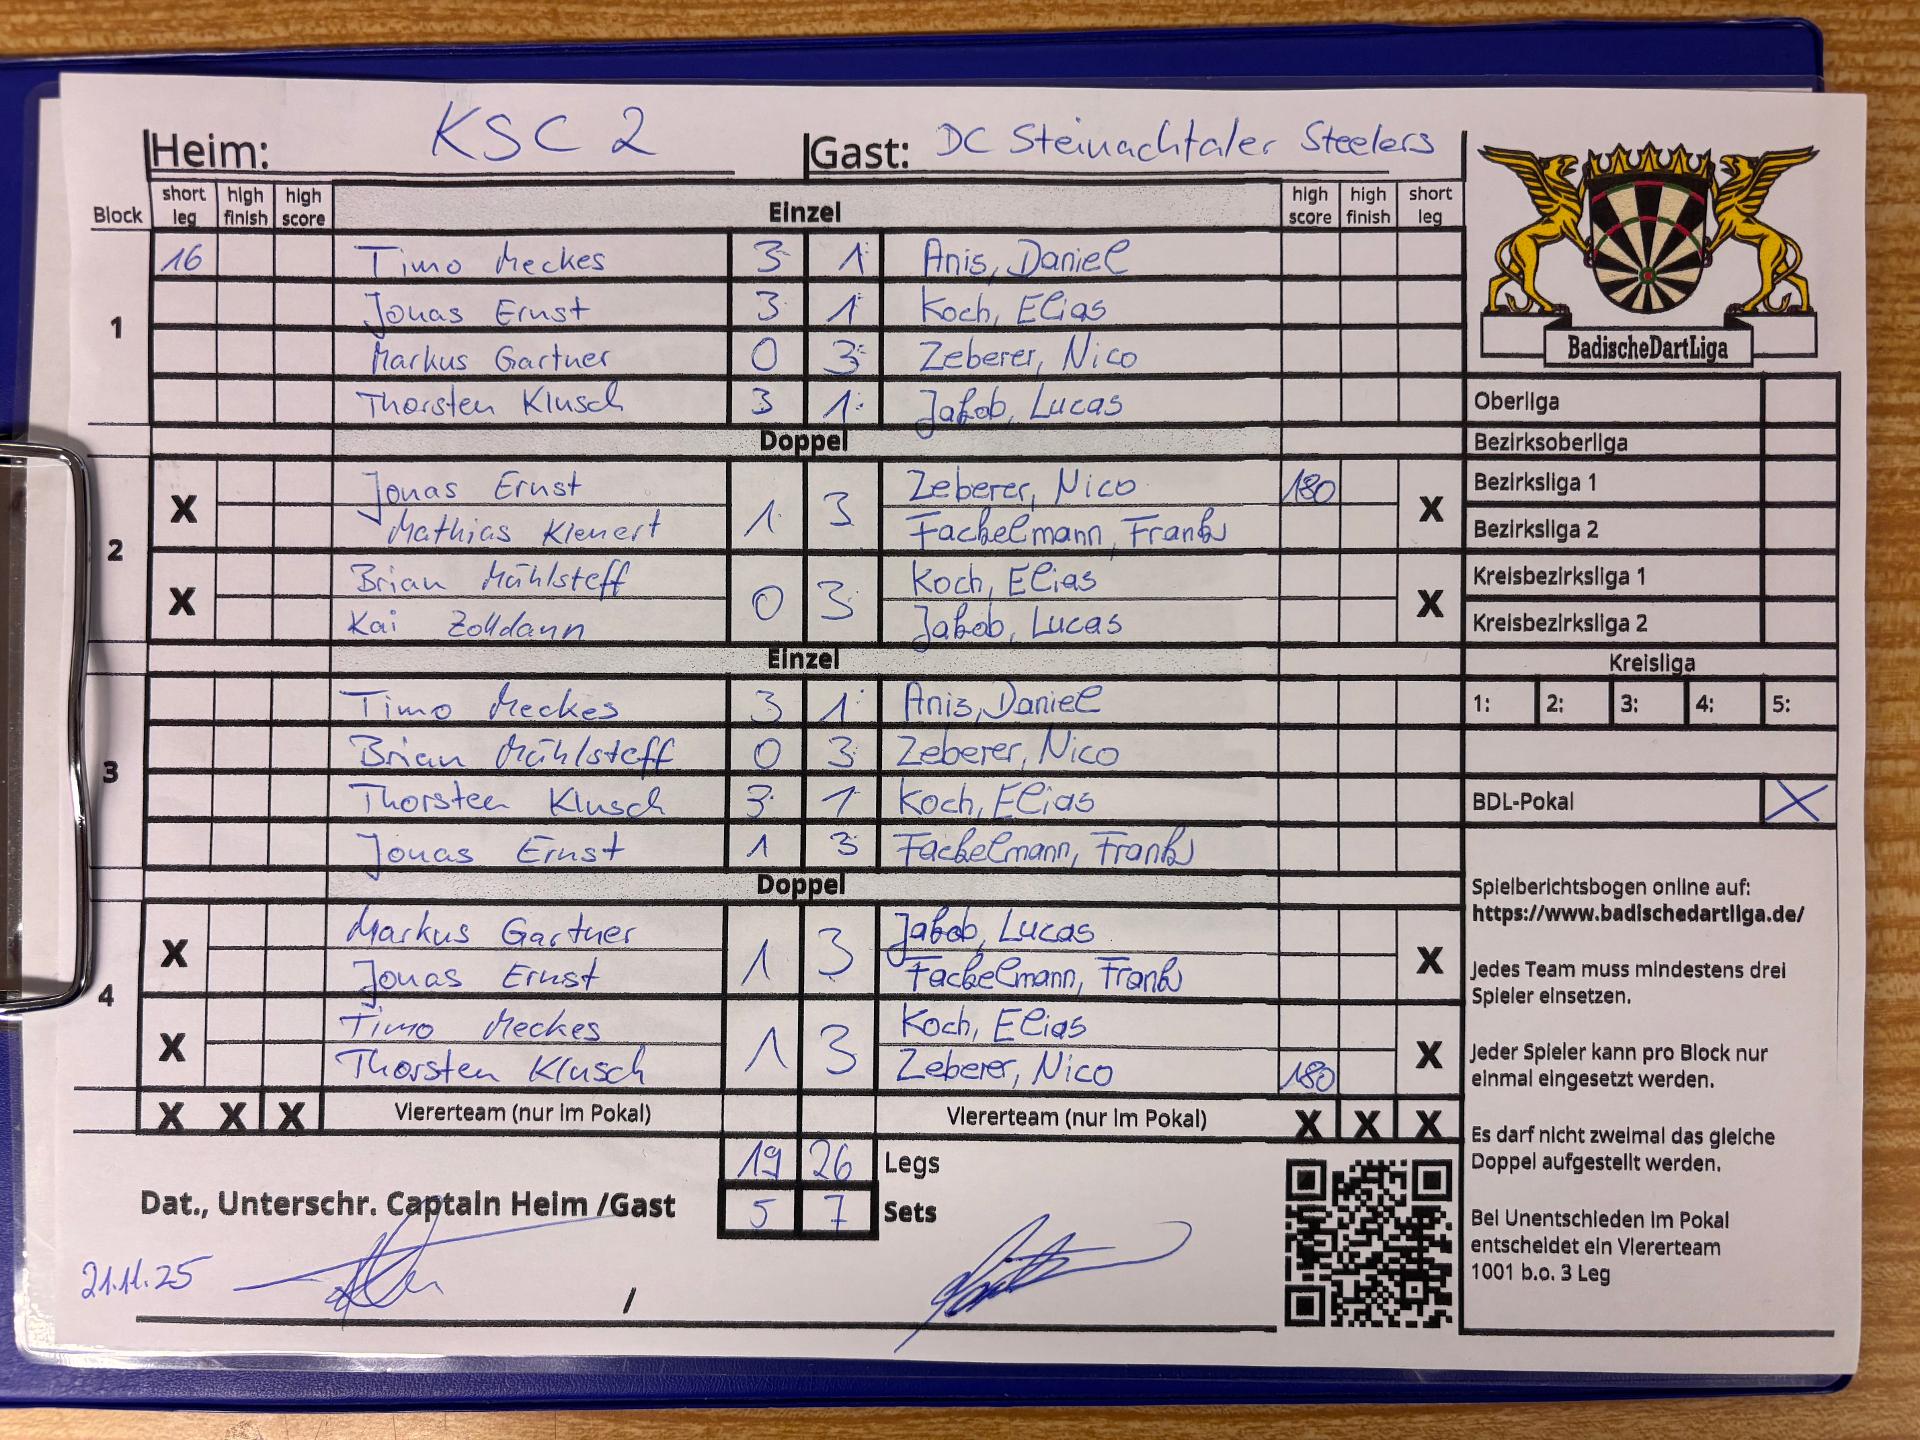 Heim: KSC 2 Gast: DC Steinachtaler Steelers
Block short leg high finish high score Einzel high score high finish short leg
1
16 Timo Meckes 3 1 Anis, Daniel
Jonas Ernst 3 1 Koch, Elias
Markus Gartner 0 3 Zeberer, Nico
Thorsten Klusch 3 1 Jakob, Lucas
Doppel
2
X Jonas Ernst 1 3 Zeberer, Nico 180 X
Mathias Kienert Fackelmann, Frank
X Brian Mühlsteff 0 3 Koch, Elias X
Kai Jakob, Lucas
Einzel
3
Timo Meckes 3 1 Anis, Daniel
Brian Mühlsteff 0 3 Zeberer, Nico
Thorsten Klusch 3 1 Koch, Elias
Jonas Ernst 1 3 Fackelmann, Frank
Doppel
4
X Markus Gartner 1 3 Jakob, Lucas X
Jonas Ernst Fackelmann, Frank
X Timo Meckes 1 3 Koch, Elias X
Thorsten Klusch Zeberer, Nico 180
X X X Viererteam (nur im Pokal) Viererteam (nur im Pokal) X X X
19 26 Legs
Dat., Unterschr. Captain Heim /Gast 5 7 Sets
21.11.25 /
BadischeDartLiga
Oberliga
Bezirksoberliga
Bezirksliga 1
Bezirksliga 2
Kreisbezirksliga 1
Kreisbezirksliga 2
Kreisliga
1: 2: 3: 4: 5:
BDL-Pokal X
Spielberichtsbogen online auf:
https://www.badischedartliga.de/
Jedes Team muss mindestens drei
Spieler einsetzen.
Jeder Spieler kann pro Block nur
einmal eingesetzt werden.
Es darf nicht zweimal das gleiche
Doppel aufgestellt werden.
Bei Unentschieden im Pokal
entscheidet ein Viererteam
1001 b.o. 3 Leg